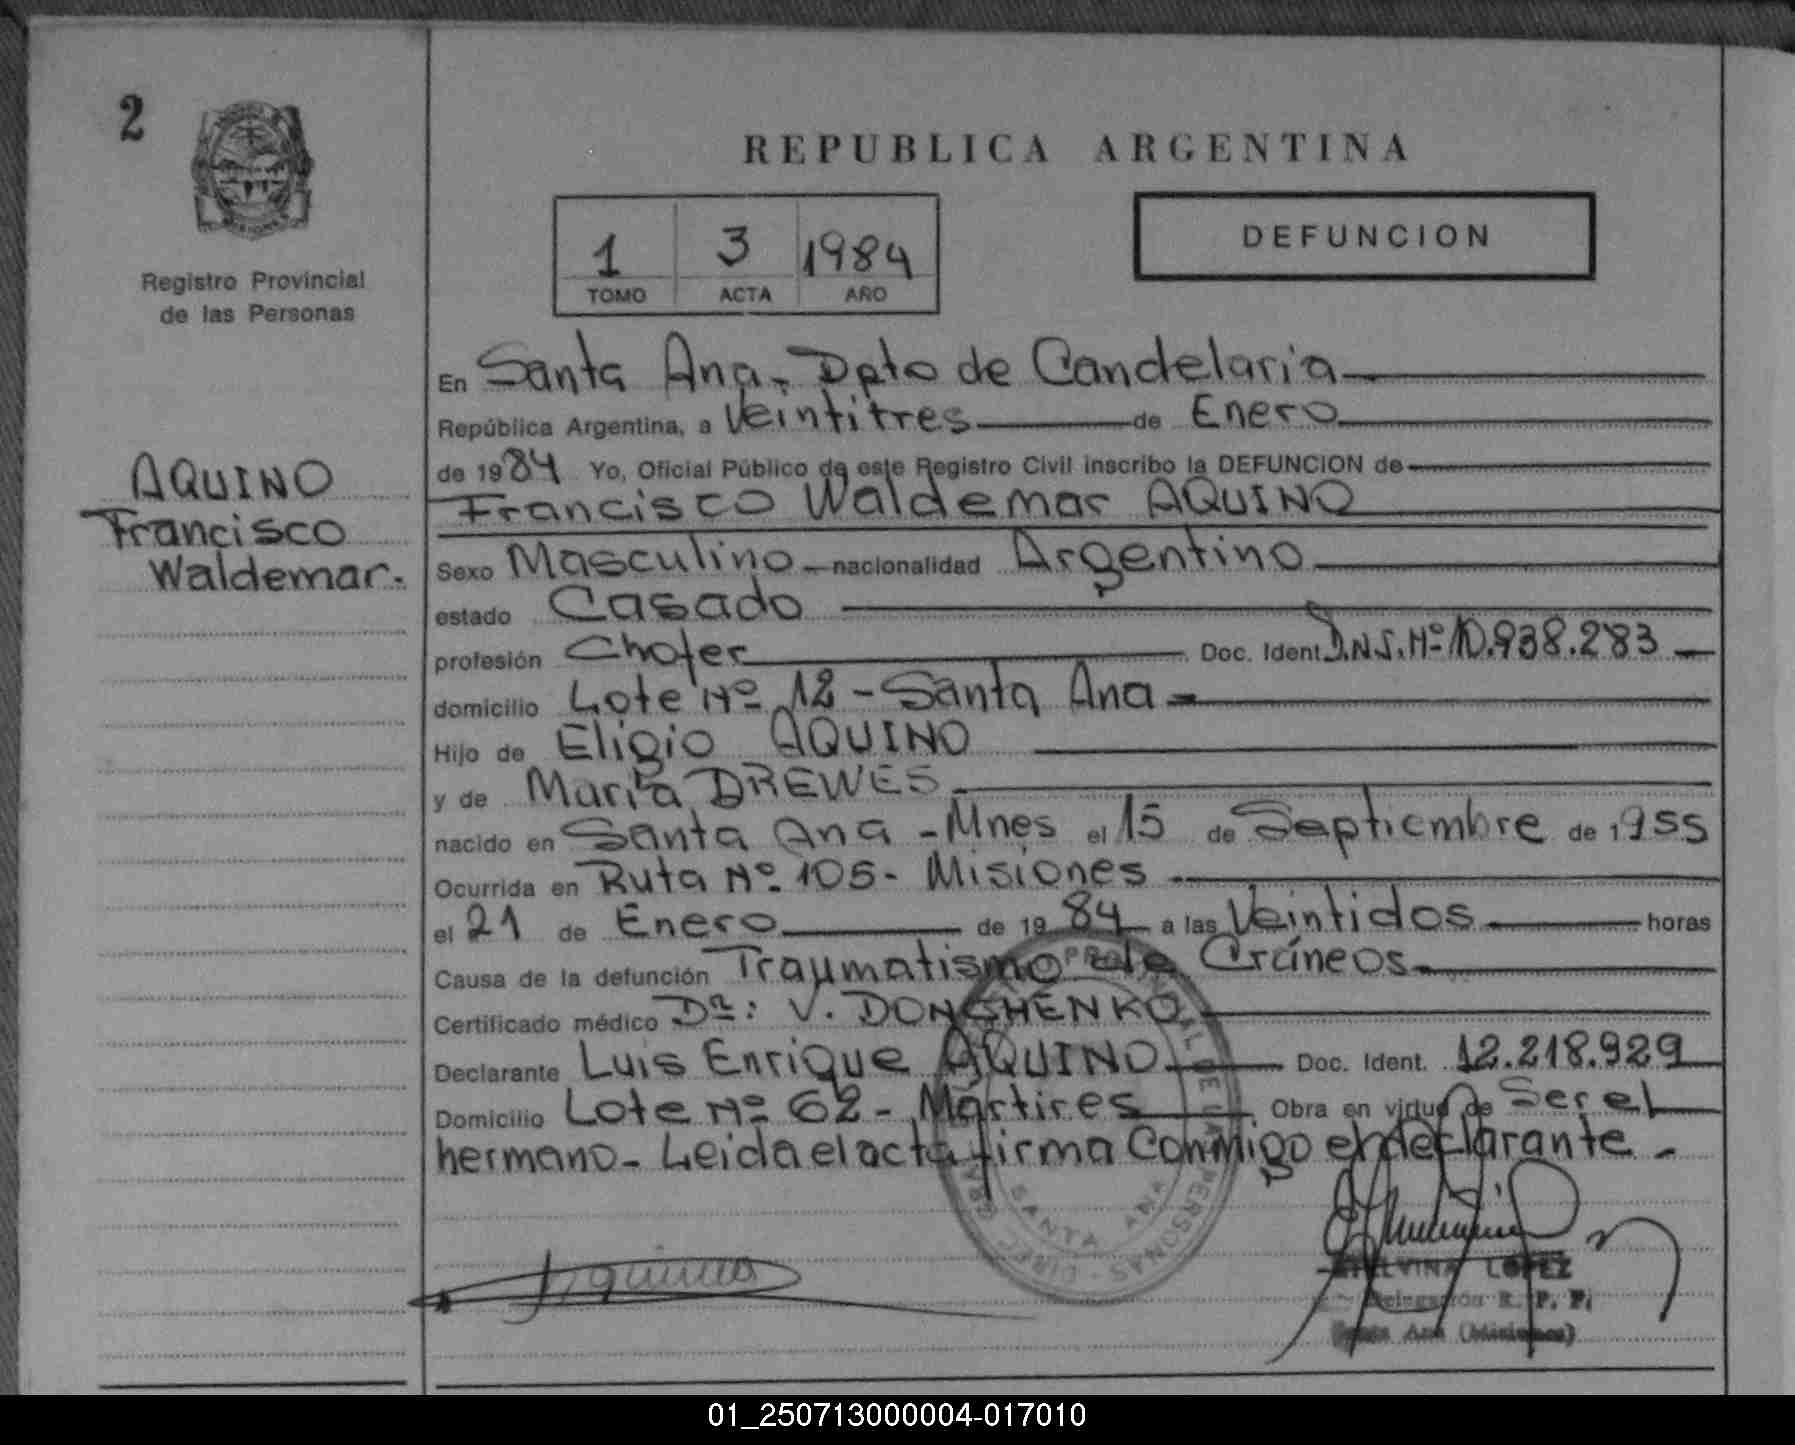 2
REPUBLICA ARGENTINA
1 3 1984
TOMO ACTA AÑO
DEFUNCION
Registro Provincial
de las Personas
AQUINO
Francisco
Waldemar.
En Santa Ana - Dpto de Candelaria
República Argentina, a Veintitres de Enero
de 1984 Yo, Oficial Público de este Registro Civil inscribo la DEFUNCION de
Francisco Waldemar AQUINO
Sexo Masculino nacionalidad Argentino
estado Casado
profesión Chofer Doc. Ident. D.N.I. Nº 10.938.283
domicilio Lote Nº 12 - Santa Ana -
Hijo de Eligio AQUINO
y de Maria DREWES
nacido en Santa Ana - Mnes el 15 de Septiembre de 1955
Ocurrida en Ruta Nº 105 - Misiones
el 21 de Enero de 1984 a las Veintidos horas
Causa de la defunción Traumatismo de Cráneos
Certificado médico Dr: V. DONSHENKO
Declarante Luis Enrique AQUINO Doc. Ident. 12.218.929
Domicilio Lote Nº 62 - Mártires Obra en virtud de Ser el
hermano - Leida el acta firma Conmigo el declarante -
SANTA ANA
LOPEZ
Delegación R. P. P.
Ana (Misiones)
01_250713000004-017010